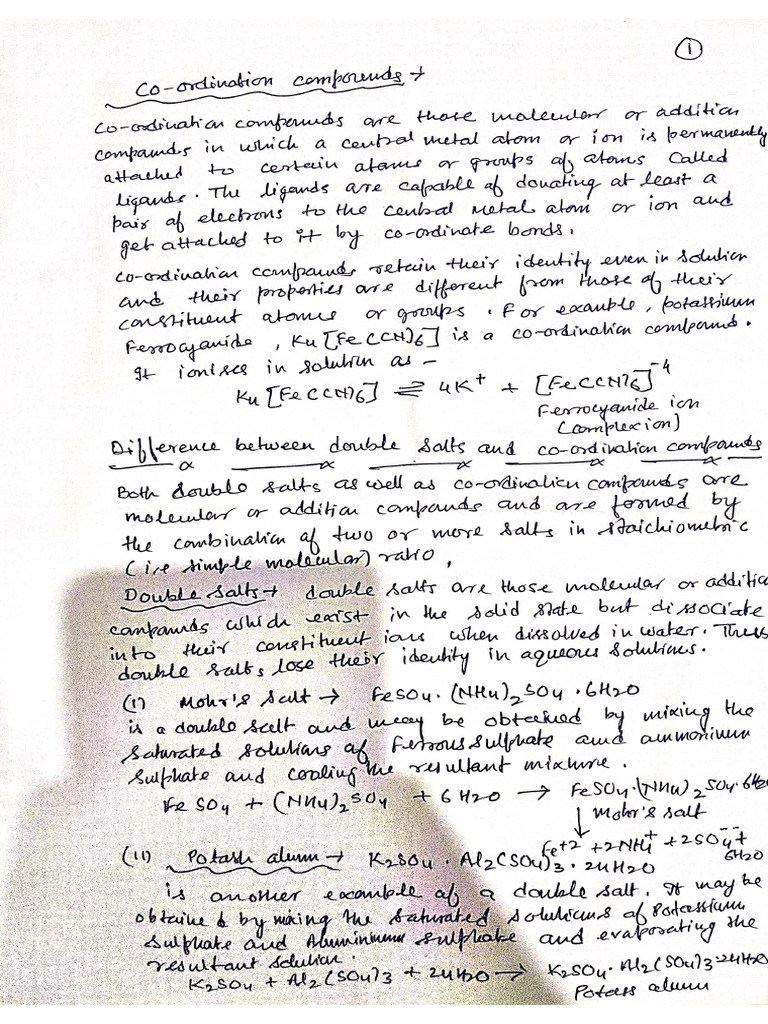 ①
Co-ordination compounds →
Co-ordination compounds are those molecular or addition
compounds in which a central metal atom or ion is permanently
attached to certain atoms or groups of atoms called
ligands. The ligands are capable of donating at least a
pair of electrons to the central metal atom or ion and
get attached to it by co-ordinate bonds.
Co-ordination compounds retain their identity even in solution
and their properties are different from those of their
constituent atoms or groups. For example, potassium
Ferrocyanide, K4[Fe(CN)6] is a co-ordination compound.
It ionises in solution as -
K4[Fe(CN)6] ⇌ 4K+ + [Fe(CN)6]-4
Ferrocyanide ion
(complex ion)
Difference between double salts and co-ordination compounds
Both double salts as well as co-ordination compounds are
molecular or addition compounds and are formed by
the combination of two or more salts in stoichiometric
(i.e simple molecular) ratio,
Double salts → double salts are those molecular or additio
compounds which exist in the solid state but dissociate
into their constituent ions when dissolved in water. Thus
double salts lose their identity in aqueous solutions.
(I) Mohr's salt → FeSO4.(NH4)2SO4.6H2O
is a double salt and may be obtained by mixing the
saturated solutions of Ferrous sulphate and ammonium
sulphate and cooling the resultant mixture.
FeSO4 + (NH4)2SO4 + 6H2O → FeSO4.(NH4)2SO4.6H2O
↓ Mohr's salt
Fe+2 + 2NH4+ + 2SO4-- + 6H2O
(II) Potash alum → K2SO4.Al2(SO4)3.24H2O
is another example of a double salt. It may be
obtained by mixing the saturated solutions of Potassium
sulphate and Aluminium sulphate and evaporating the
resultant solution.
K2SO4 + Al2(SO4)3 + 24H2O → K2SO4.Al2(SO4)3.24H2O
Potass alum